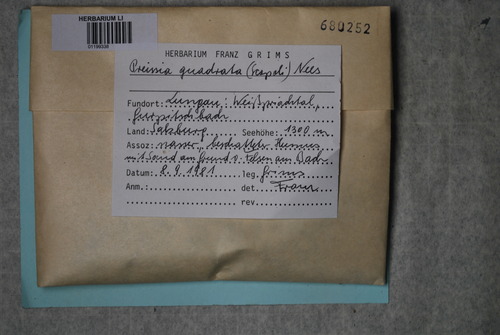 HERBARIUM LI
01199338
680252
HERBARIUM FRANZ GRIMS
Preissia quadrata (Scopoli) Nees
Fundort: Lungau: Weißpriachtal,
bach
Land: Salzburg Seehöhe: 1300 m
Assoz: nasser, beschatteter Humus
m. Sand am Grund v. Felsen am Bach
Datum: 8.9.1981 leg. Grims
Anm.: det. Franz
rev.